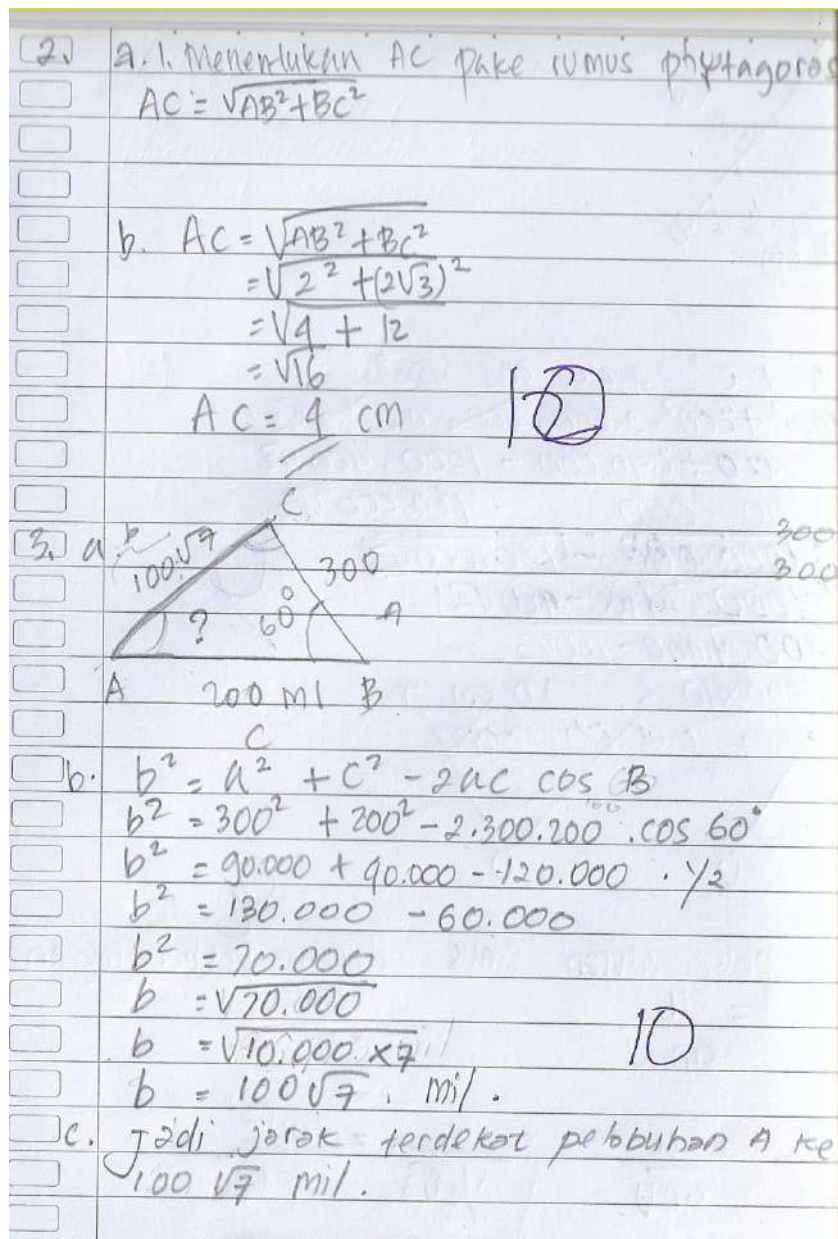 2. a. 1. Menentukan AC pake rumus phytagoras
AC = √AB² + BC²
b. AC = √AB² + BC²
= √2² + (2√3)²
= √4 + 12
= √16
AC = 4 cm
3. a.
C
b
100√7
300
300
300
?
60°
A
A 200 mil B
C
b. b² = a² + c² - 2ac cos B
b² = 300² + 200² - 2.300.200 . cos 60°
b² = 90.000 + 40.000 - 120.000 . 1/2
b² = 130.000 - 60.000
b² = 70.000
b = √70.000
b = √10.000 x 7
10
b = 100√7 . mil .
c. Jadi jarak terdekat pelabuhan A ke
100 √7 mil.